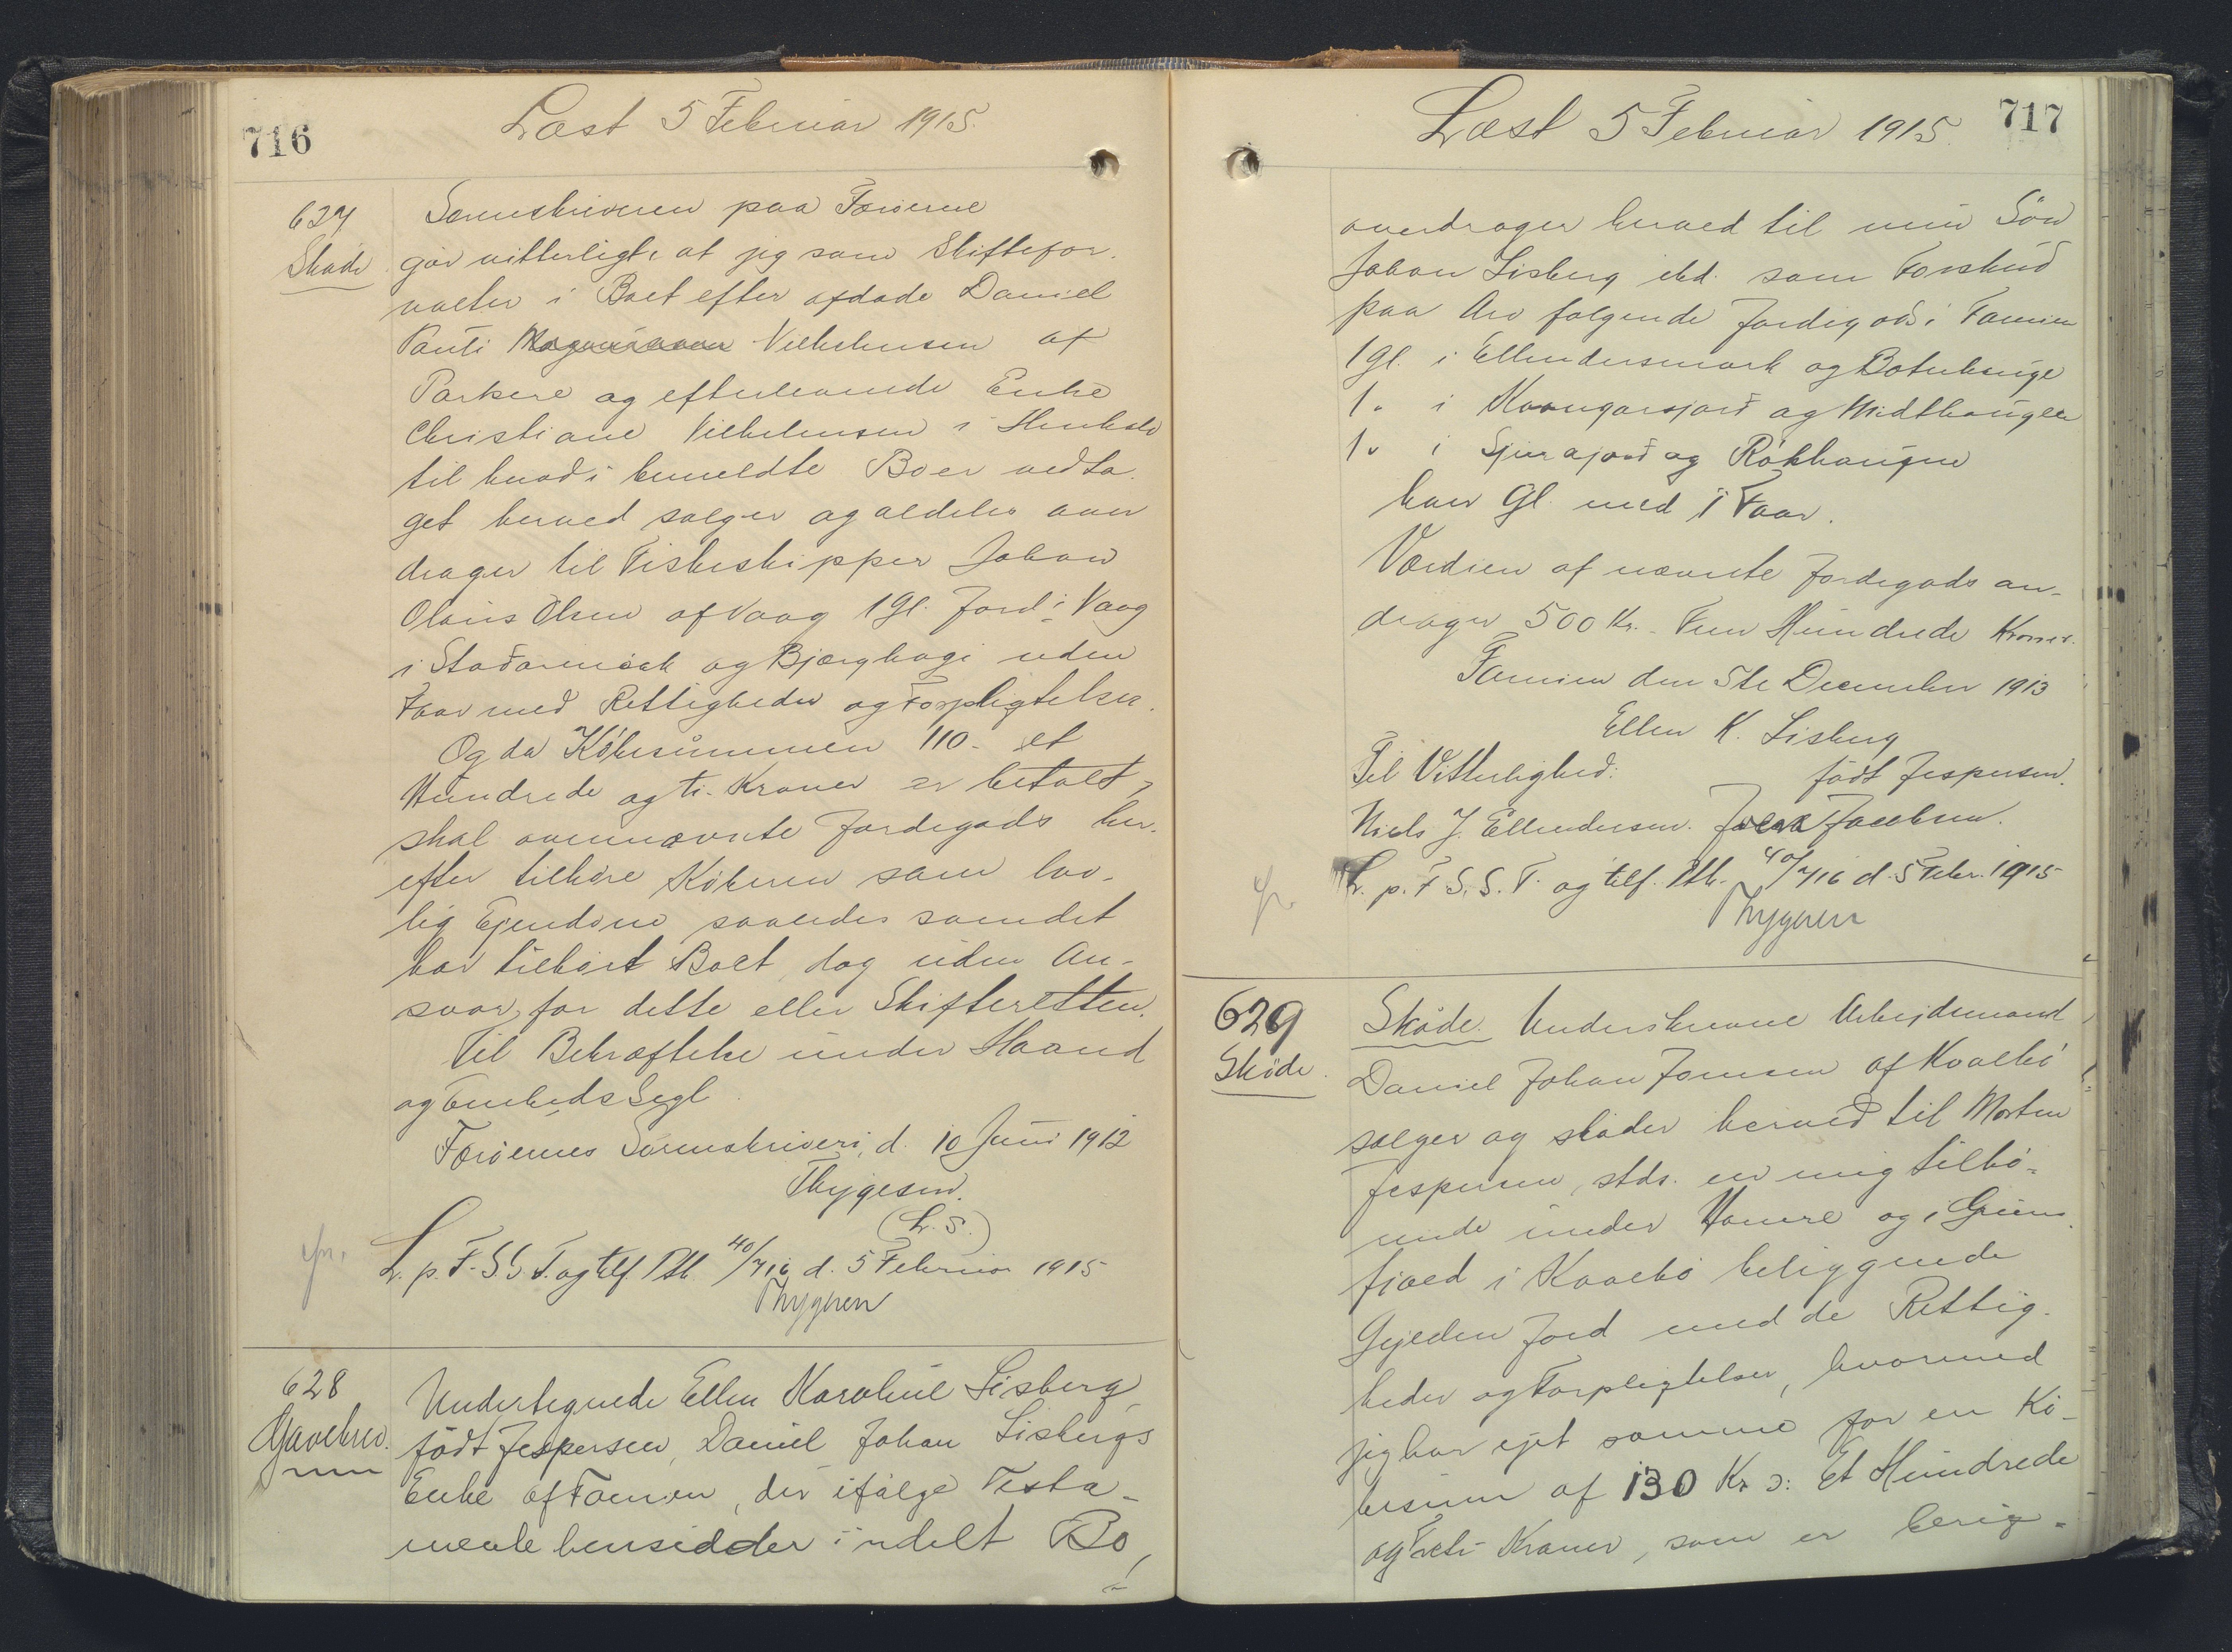 716
Læst 5 Februar 1915.
627
Skøde
Sorenskriveren paa Færøerne
gør vitterligt, at jeg som Skiftefor-
valter i Boet efter afdøde Daniel
Pauli Vilhelmsen af
Porkere og efterlevende Enke
Christiane Vilhelmsen i Henhold
til hvad i bemeldte Bo er vedta-
get herved sælger og aldeles over
drager til Fiskeskipper Johan
Olaus Olsen af Vaag 1 Gl. Jord i Vaag
i Stadarmørk og Bjærghage uden
Faar med Rettigheder og Forpligtelser.
Og da Købesummen 110 - et
Hundrede og ti - Kroner er betalt,
skal ovennævnte Jordegods her-
efter tilhøre Køberen som lov-
lig Ejendom saaledes som det
har tilhørt Boet, dog uden An-
svar for dette eller Skifteretten.
Til Bekræftelse under Haand
og Embeds Segl.
Færøernes Sorenskriveri, d. 10 Juni 1912
Thygesen.
(L. S.)
L. p. F. S. S. T. og tilf. Ptb. 40/716 d. 5 Februar 1915
Thygesen
628
Gavebrev.
Undertegnede Ellen Karoline Lisberg,
født Jespersen, Daniel Johan Lisbergs
Enke af Famien, der ifølge Testa-
mente hensidder i udelt Bo,
717
Læst 5 Februar 1915.
overdrager herved til min Søn
Johan Lisberg ibd. som Forskud
paa Arv følgende Jordegods i Famien
1 Gl. i Ellendersmark og Botnhauge
1 " i og Midthaugen
1 " i og Rókhaugen
hver Gl. med 1 Faar.
Værdien af nævnte Jordegods an-
drager 500 Kr. - Fem Hundrede Kroner.
Famien den 5te December 1913
Ellen K. Lisberg
Til Vitterlighed: født Jespersen.
Niels J. Ellendersen. Jacobsen.
L. p. F. S. S. T. og tilf. Ptb. 40/716 d. 5 Febr. 1915
Thygesen
629
Skøde.
Skøde. Underskrevne Arbejdsmand
Daniel Johan Joensen af Kvalbø
sælger og skøder herved til Morten
Jespersen, stds. en mig tilhø-
rende under Hamre og i Grims-
fjæld i Kvalbø beliggende
Gylden Jord med de Rettig-
heder og Forpligtelser, hvormed
jeg har ejet samme for en Kø-
besum af 130 Kr. ɔ: Et Hundrede
og Treti Kroner, som er berig-